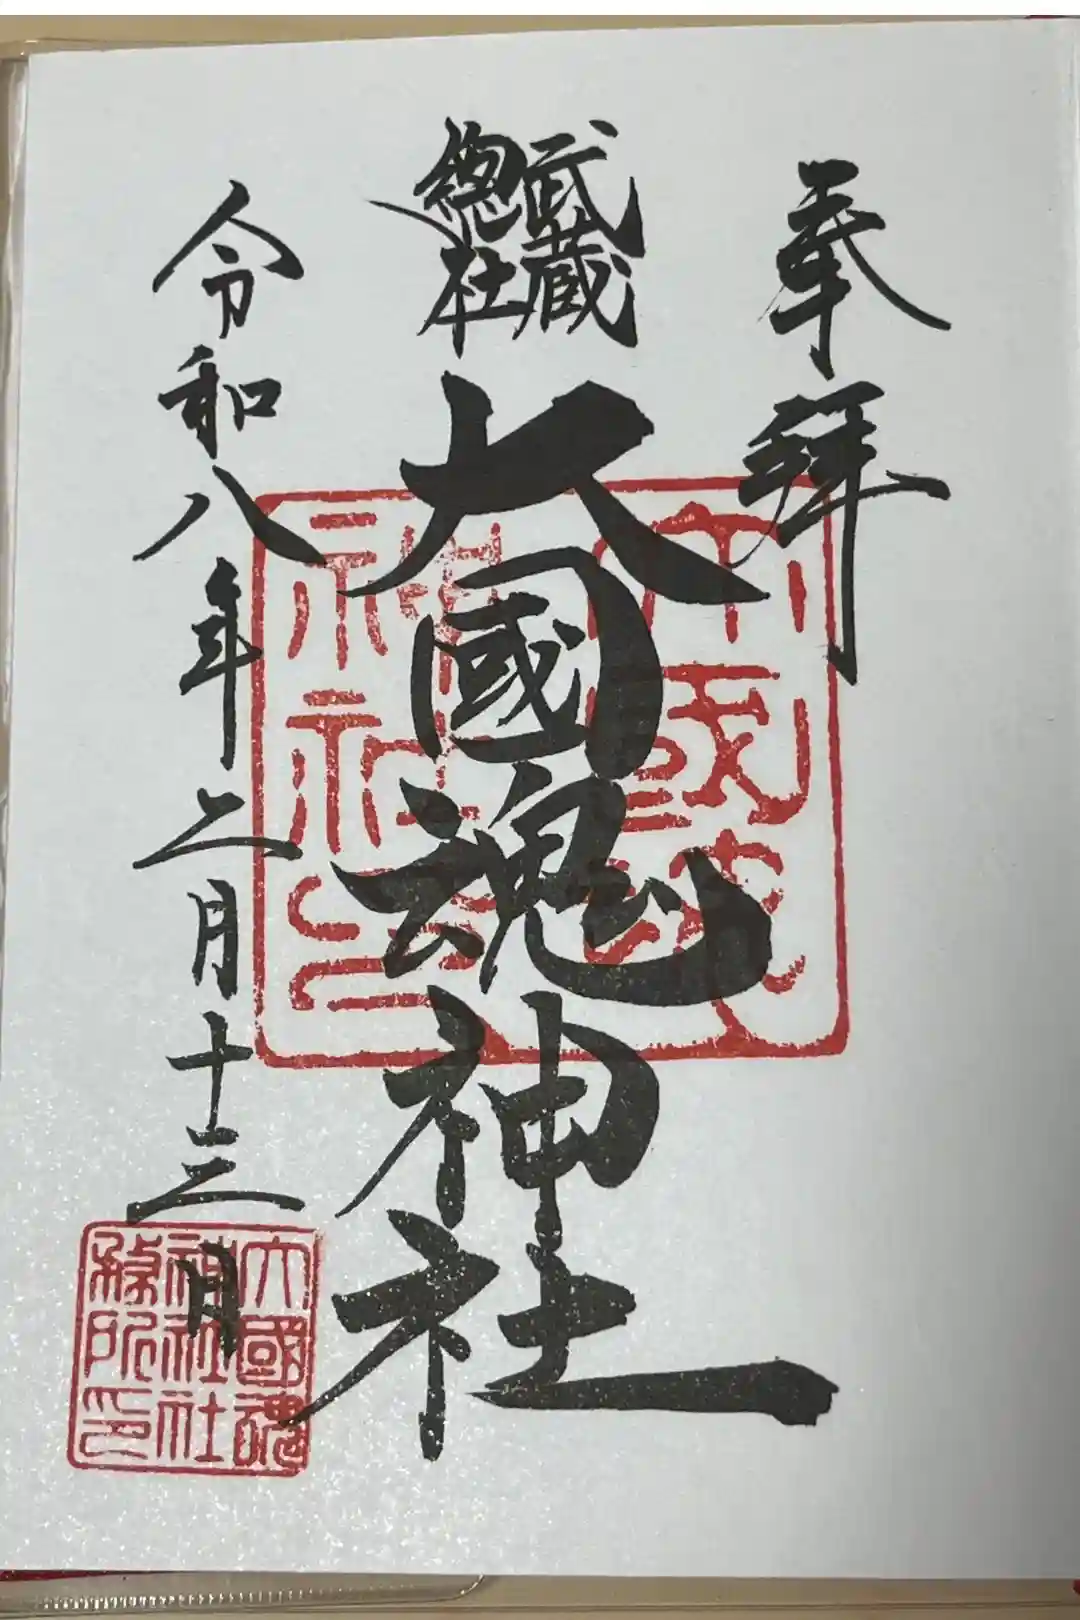 奉拝
武蔵
總社
大國魂神社
令和八年二月十三日
大國魂
神社印
大國魂
神社社
務所印